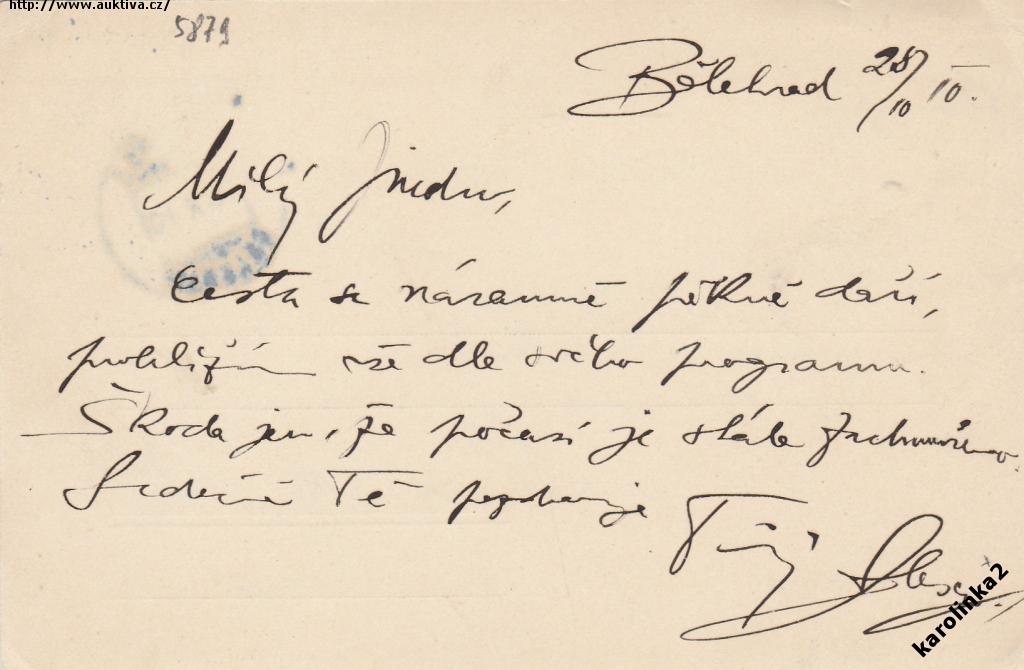 http://www.auktiva.cz/
5879
Bělehrad 28/10 10.
Milý Jindro,
Cesta se náramně pěkně daří,
prohlížím vše dle svého programu.
Škoda jen, že počasí je stále zachmuřeno.
Srdečně Tě pozdravuje
Tvůj
karolinka2